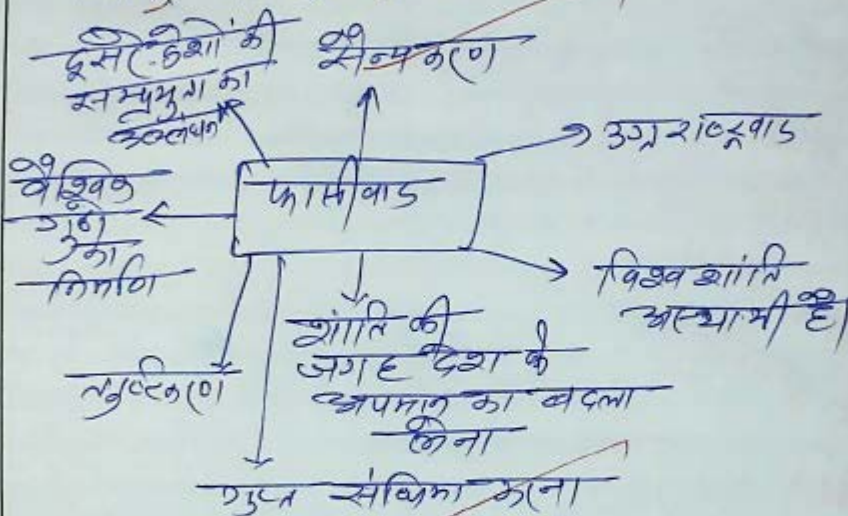 दूसरे देशों की
सम्प्रभुता का
उल्लंघन
सैन्यकरण
उग्र राष्ट्रवाद
वैश्विक
गुटों
का
निर्माण
फासीवाद
विश्व शांति
अस्थायी है।
तुष्टिकरण
शांति की
जगह देश के
अपमान का बदला
लेना
गुप्त संधियां करना